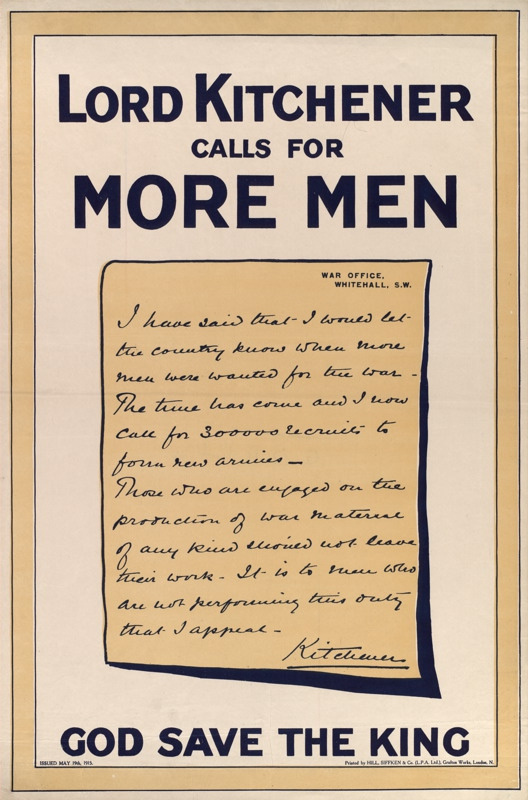 LORD KITCHENER
CALLS FOR
MORE MEN
WAR OFFICE,
WHITEHALL, S.W.
I have said that I would let
the country know when more
men were wanted for the war -
The time has come and I now
call for 300000 recruits to
form new armies -
Those who are engaged on the
production of war material
of any kind should not leave
their work - It is to men who
are not performing this duty
that I appeal -
Kitchener
GOD SAVE THE KING
ISSUED MAY 19th, 1915.
Printed by HILL, SIFFKEN & Co. (L.P.A. Ltd.), Grafton Works, London, N.